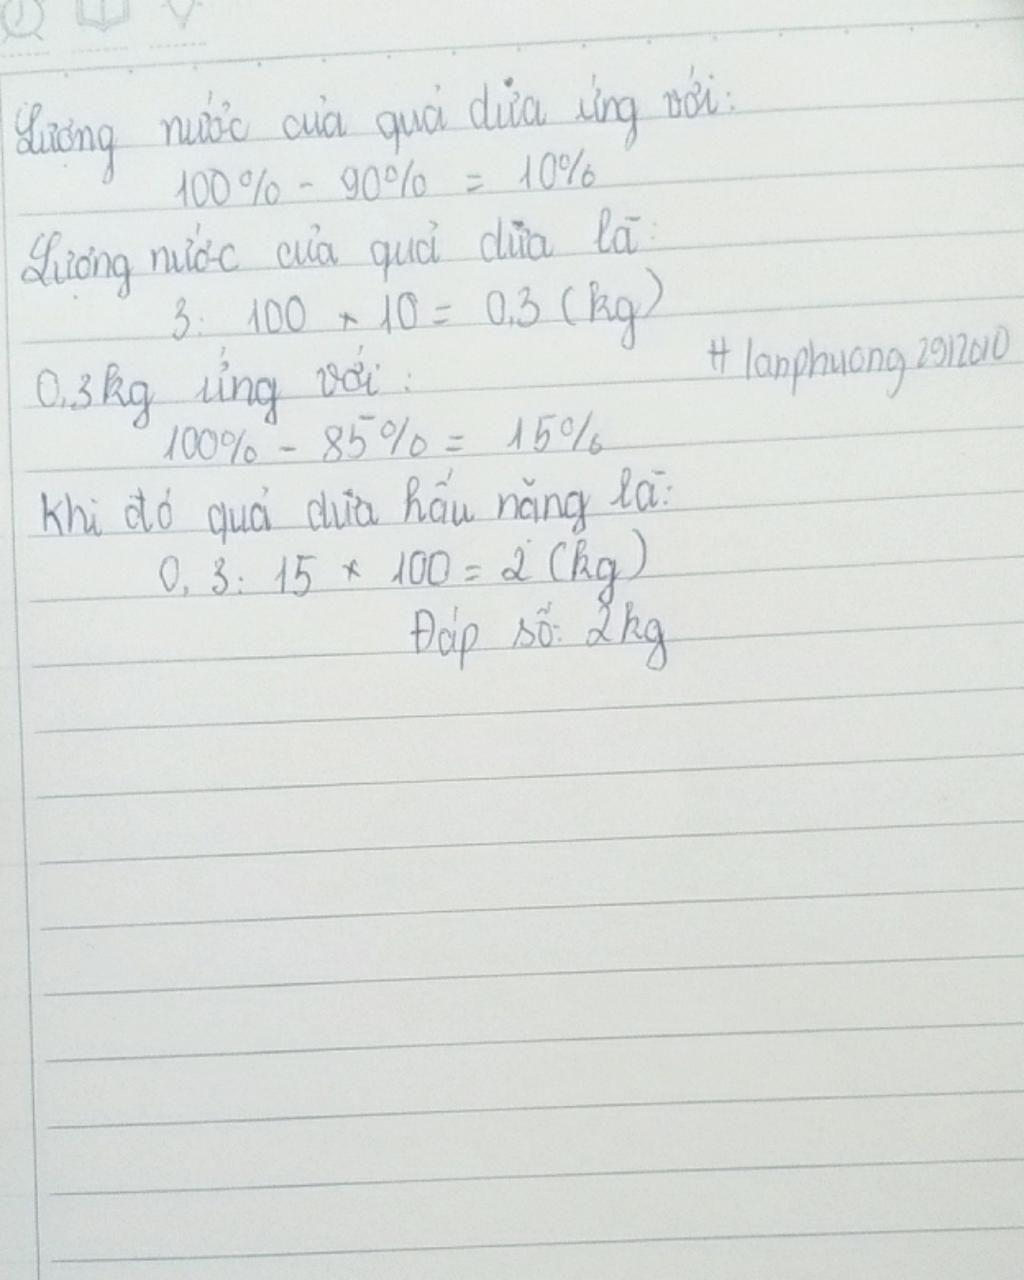 Lượng nước của quả dưa ứng với:
100% - 90% = 10%
Lượng nước của quả dưa là:
3: 100 * 10 = 0,3 (kg)
0,3kg ứng với:
# lanphuong2912010
100% - 85% = 15%
Khi đó quả dưa hấu nặng là:
0,3: 15 * 100 = 2 (kg)
Đáp số: 2kg